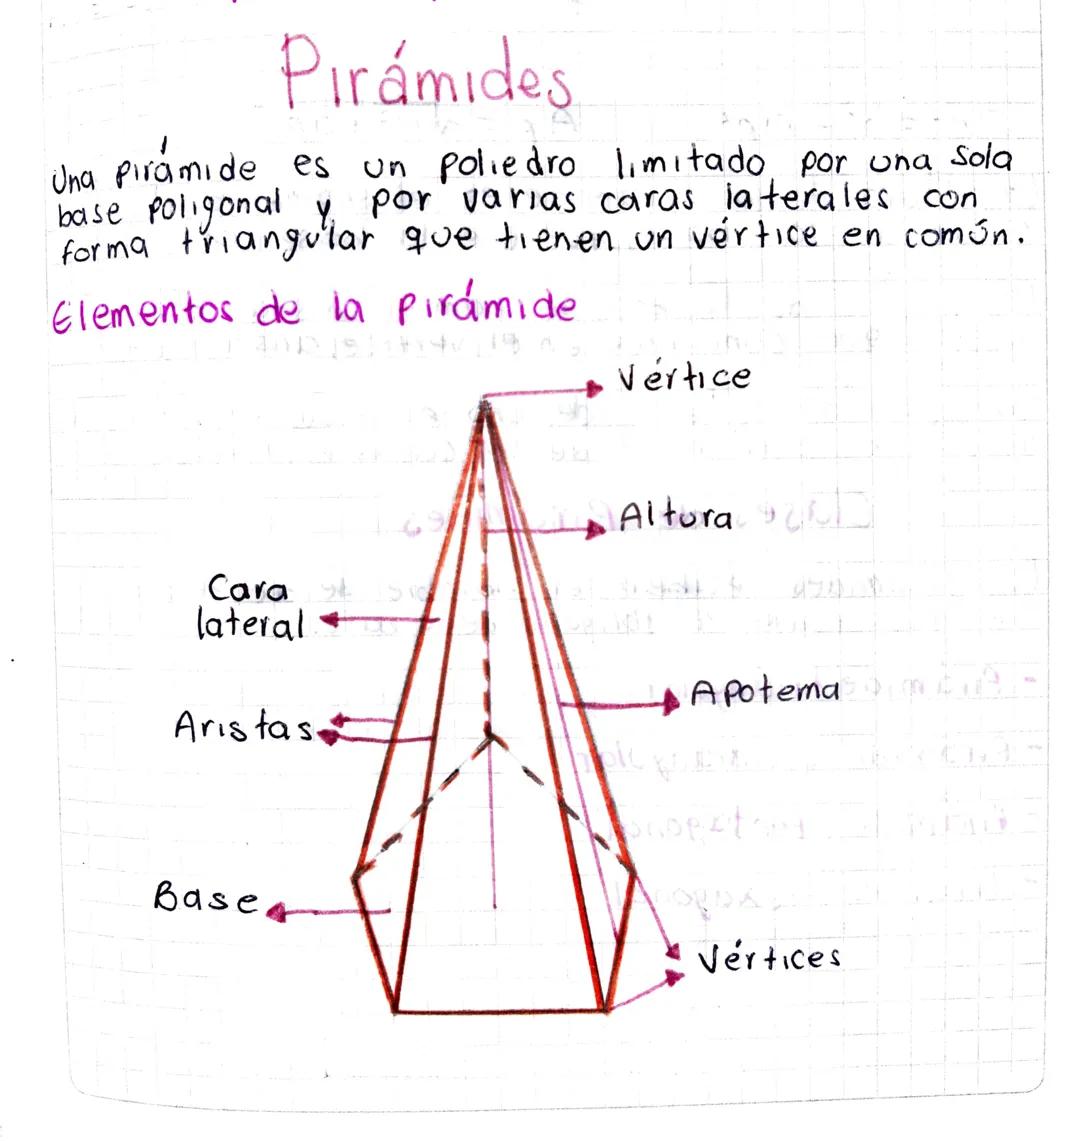 Pirámides
Una pirámide es un poliedro limitado por una sola
base poligonal y por varias caras laterales con
forma triangular que tienen un vértice en común.
Elementos de la pirámide
Vértice
Altura
Cara
lateral
Apotema
Aristas
Base
Vértices